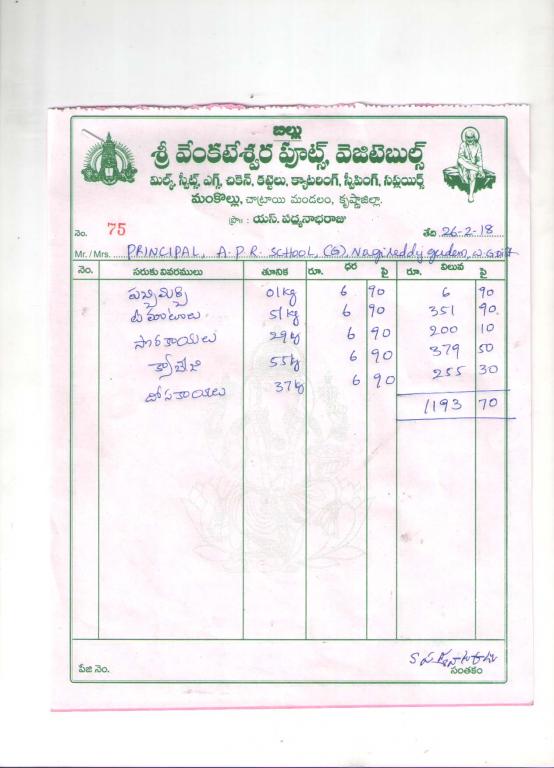 బిల్లు
శ్రీ వేంకటేశ్వర ఫూట్స్, వెజిటెబుల్స్
మిల్క్, స్వీట్స్, ఎగ్స్, చికెన్, కట్టెలు, క్యాటరింగ్, స్వీపింగ్, సప్లయిర్స్
మంకొల్లు, చాట్రాయి మండలం, కృష్ణాజిల్లా.
ప్రొ: యస్. పద్మనాభరాజు
నెం. 75 తేది 26-2-18
Mr. / Mrs. PRINCIPAL, A.P.R. SCHOOL, (G), Nagireddy gudem, W.G.Dist
నెం. సరుకు వివరములు తూనిక రూ. ధర పై రూ. విలువ పై
పచ్చిమిర్చి 01kg 6 90 6 90
టమాటాలు 51kg 6 90 351 90
సొరకాయలు 29kg 6 90 200 10
క్యాబేజి 55kg 6 90 379 50
దోసకాయలు 37kg 6 90 255 30
1193 70
పేజి నెం. సంతకం